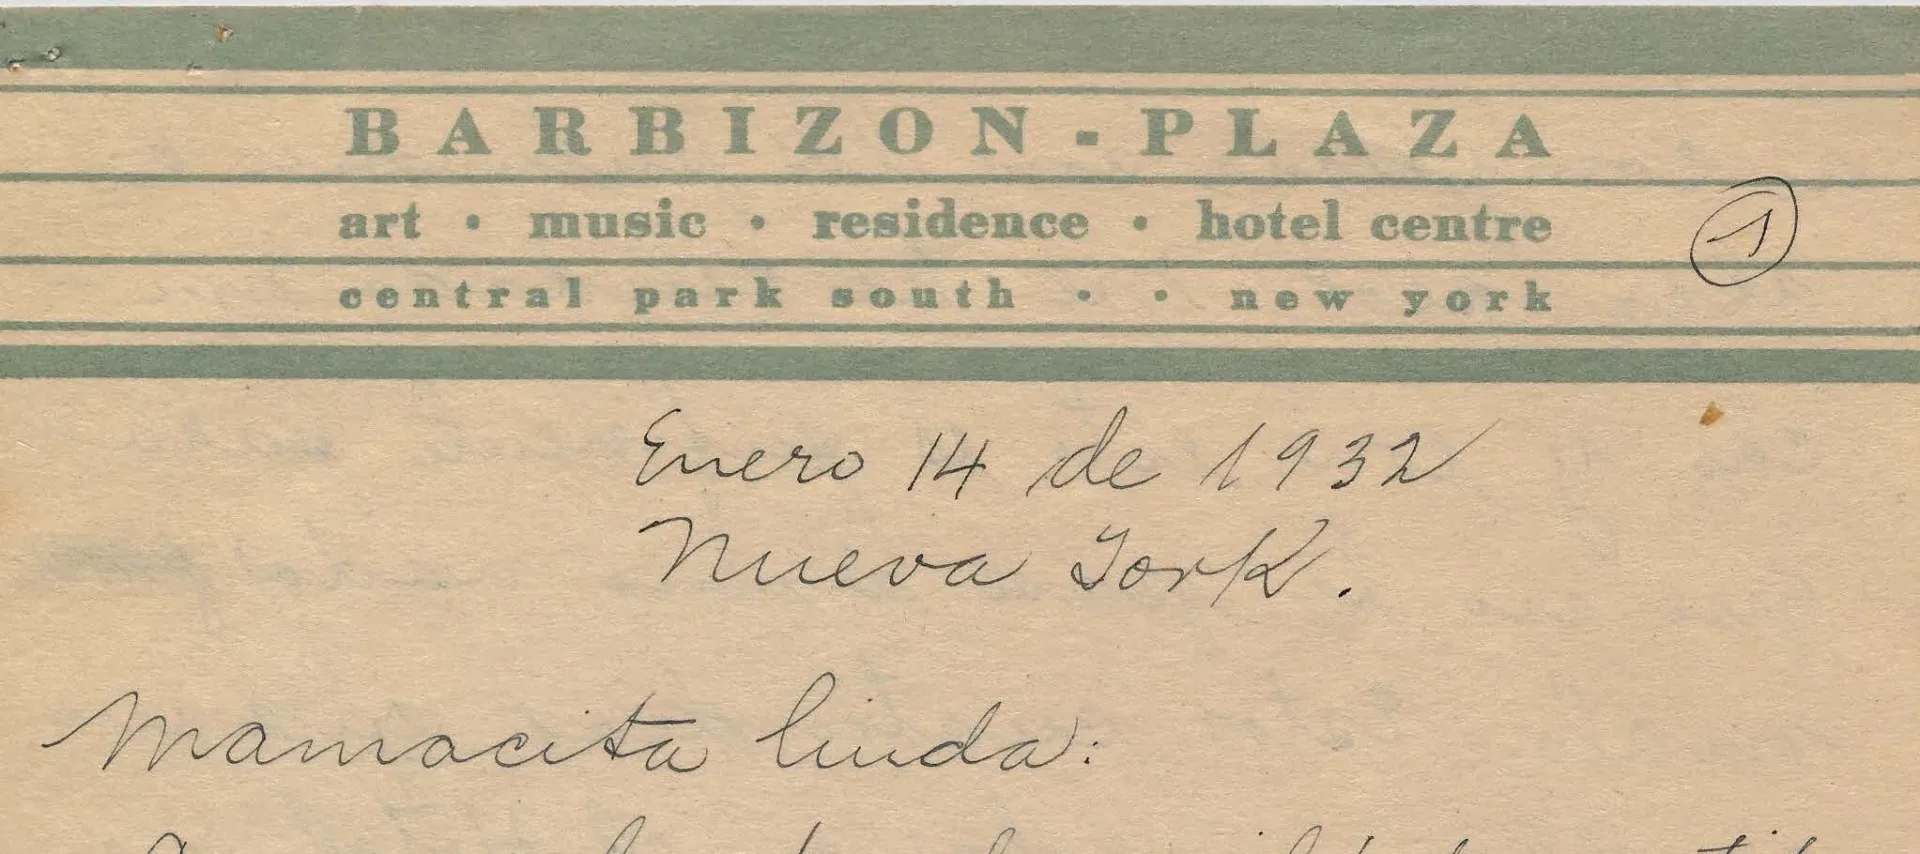 BARBIZON-PLAZA
art • music • residence • hotel centre
1
central park south • • new york
Enero 14 de 1932
Nueva York.
Mamacita linda: